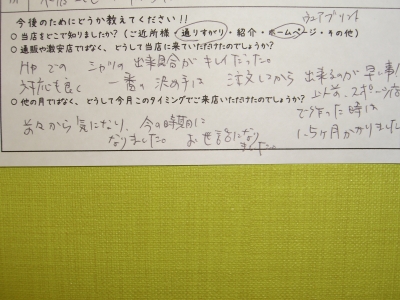 今後のためにどうか教えてください!!
ウエアプリント
○ 当店をどこで知りましたか?(ご近所様・通りすがり・紹介・ホームページ・その他)
○ 通販や激安店ではなく、どうして当店に来ていただけたのでしょうか?
HPでの シャツの 出来具合が キレイだった。
対応も良く 一番の 決め手は 注文してから 出来るのが 早い事!
○ 他の月ではなく、どうして今月このタイミングでご来店いただけたのでしょうか?
以前、スポーツ店
で作った時は
1.5ヶ月かかりました
前々から 気になり、今の時期に
なりました。 お世話になり
ました。